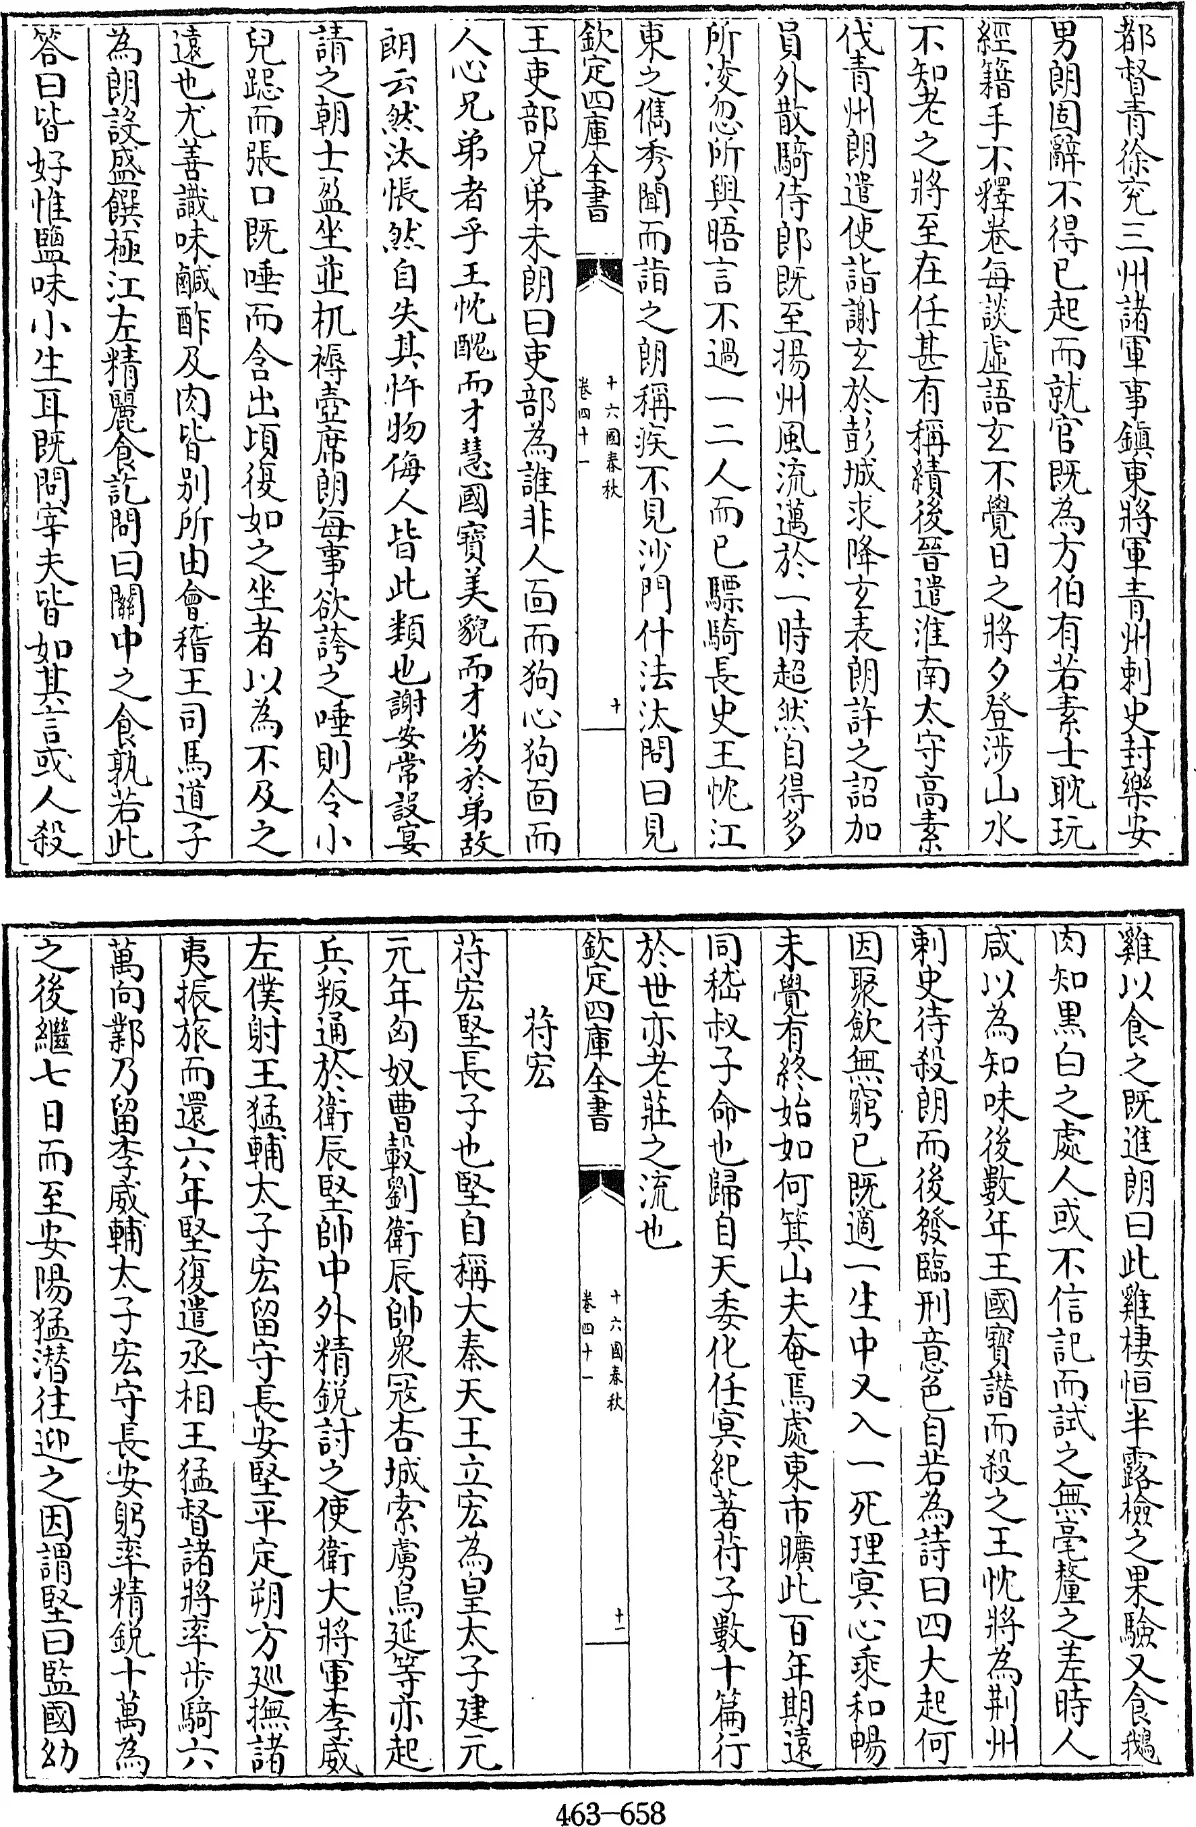 都督青徐兗三州諸軍事鎮東將軍青州刺史封樂安
男朗固辭不得已起而就官既為方伯有若素士耽玩
經籍手不釋卷每談虛語玄不覺日之將夕登渉山水
不知老之將至在任甚有稱績後晉遣淮南太守高素
伐青州朗遣使詣謝玄於彭城求降玄表朗許之詔加
員外散騎侍郎既至揚州風流邁於一時超然自得多
所凌忽所與晤言不過一二人而已驃騎長史王忱江
東之儁秀聞而詣之朗稱疾不見沙門什法汰問曰見
欽定四庫全書
十六國春秋
卷四十一
十
王吏部兄弟未朗曰吏部為誰非人面而狗心狗面而
人心兄弟者乎王忱醜而才慧國寶美貌而才劣於弟故
朗云然汰悵然自失其忤物侮人皆此類也謝安常設宴
請之朝士盈坐並机褥壺席朗每事欲誇之唾則令小
兒跽而張口既唾而含出頃復如之坐者以為不及之
遠也尤善識味鹹酢及肉皆別所由會稽王司馬道子
為朗設盛饌極江左精麗食訖問曰關中之食孰若此
答曰皆好惟鹽味小生耳既問宰夫皆如其言或人殺
雞以食之既進朗曰此雞棲恒半露檢之果驗又食鵝
肉知黑白之處人或不信記而試之無毫釐之差時人
咸以為知味後數年王國寶譖而殺之王忱將為荆州
刺史待殺朗而後發臨刑意色自若為詩曰四大起何
因聚歛無窮已既適一生中又入一死理冥心乘和暢
未覺有終始如何箕山夫奄焉處東市曠此百年期遠
同嵇叔子命也歸自天委化任冥紀著苻子數十篇行
於世亦老莊之流也
欽定四庫全書
十六國春秋
卷四十一
十一
苻宏
苻宏堅長子也堅自稱大秦天王立宏為皇太子建元
元年匈奴曹轂劉衛辰帥衆冦杏城索虜烏延等亦起
兵叛通於衛辰堅帥中外精鋭討之使衛大將軍李威
左僕射王猛輔太子宏留守長安堅平定朔方廵撫諸
夷振旅而還六年堅復遣丞相王猛督諸將率步騎六
萬向鄴乃留李威輔太子宏守長安躬率精鋭十萬為
之後繼七日而至安陽猛潛往迎之因謂堅曰監國幼
463-658